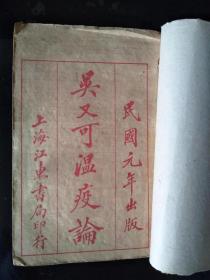 民國元年出版
吳又可溫疫論
上海江東書局印行